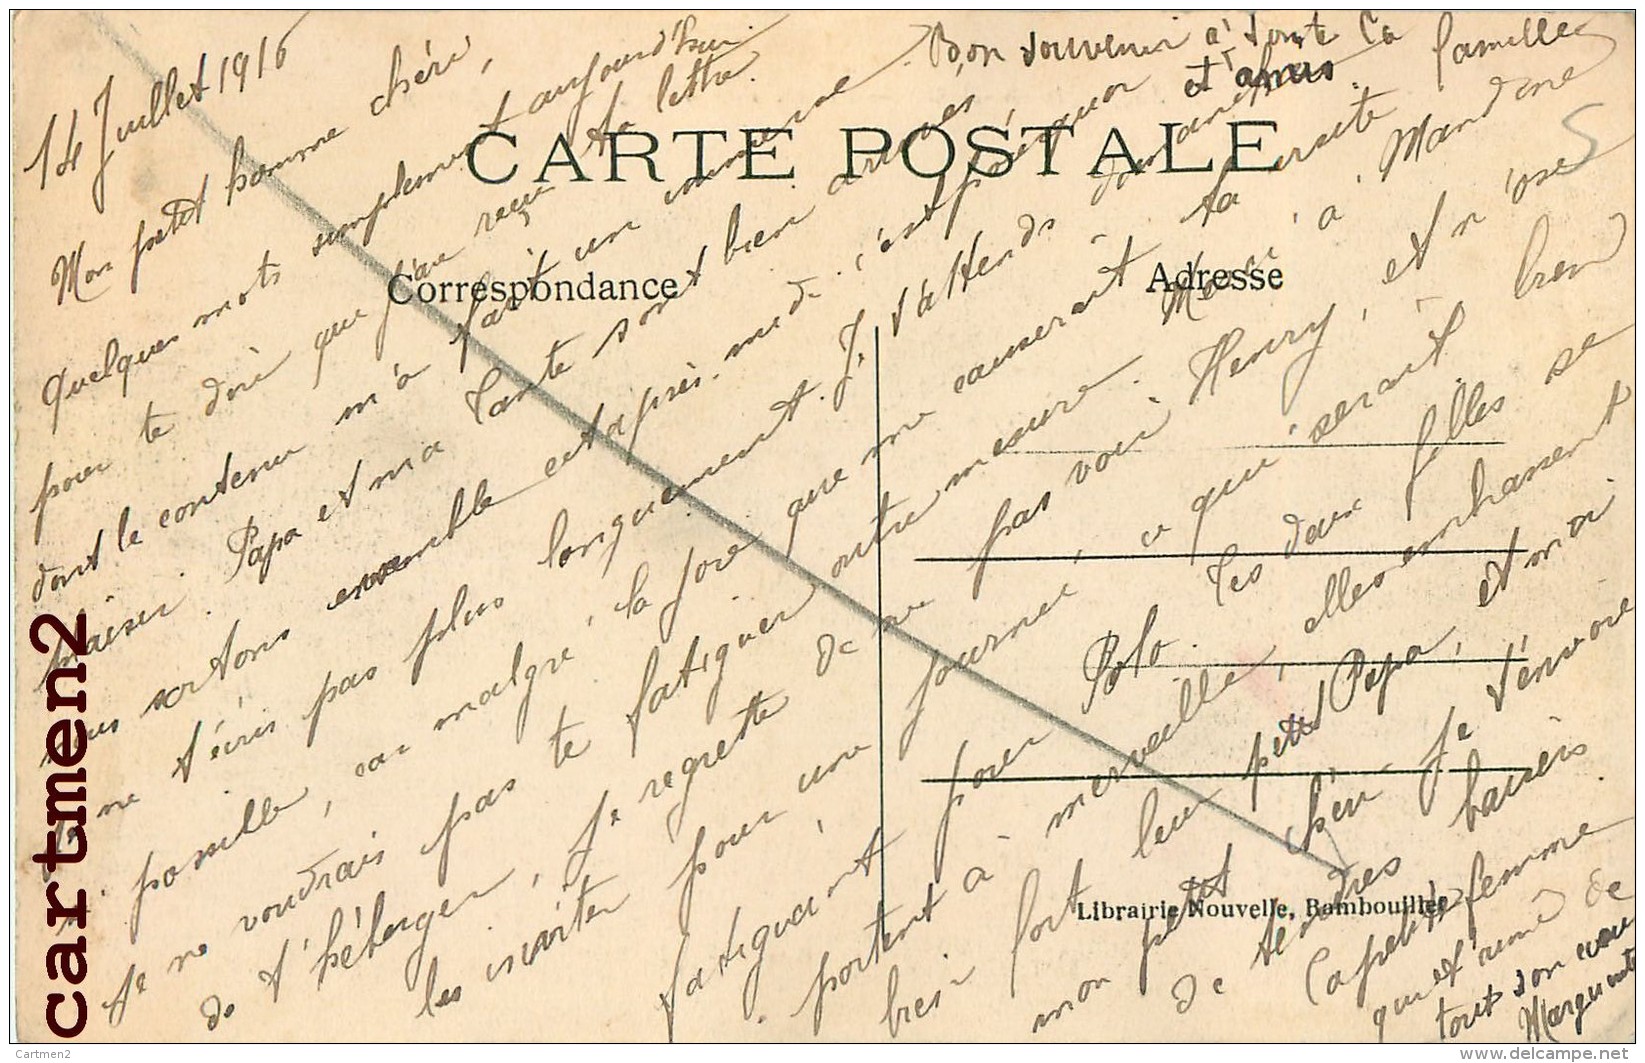 14 Juillet 1916
Mon petit homme chéri,
Quelques mots simplement aujourd'hui
pour te dire que j'ai reçu ta lettre
dont le contenu m'a fait un immense
plaisir. Papa et ma Tante sont bien arrivés
nous sortons ensemble cet après-midi. c'est pourquoi
je ne t'écris pas plus longuement. Je t'attends dimanche
si possible, car malgré la joie que me causerait ta visite
Je ne voudrais pas te fatiguer outre mesure. Merci à Mandine
de t'héberger, je regrette de ne pas voir Henry, et n'ose
les inviter pour une journée, ce qui serait bien
fatiguant pour Polo. Tes deux filles se
portent à merveille, elles embrassent
bien fort leur petit Papa, et moi
mon petit chéri je t'envoie
de tendres baisers
Ta petite femme
qui t'aime de
tout son cœur
Marguerite
Bon souvenir à toute la famille
et amis.
CARTE POSTALE
Correspondance
Adresse
Librairie Nouvelle, Rambouillet
cartmen2
Cartmen2
delcampe.net